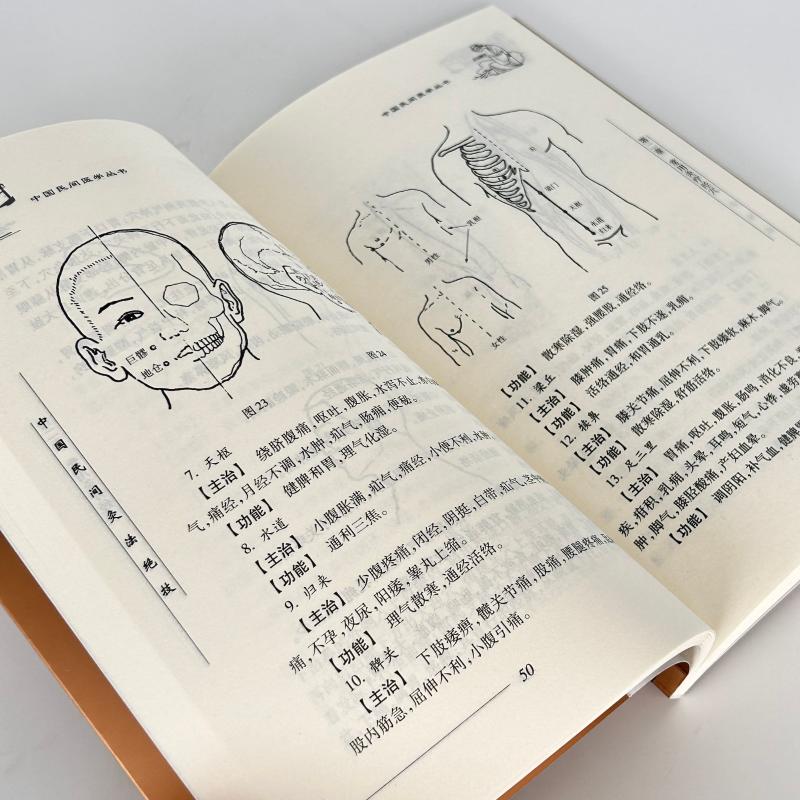 中国民间医学丛书
巨髎
地仓
图23
图24
中国民间灸法绝技
7. 天枢
【主治】 绕脐腹痛,呕吐,腹胀,水泻不止,
气,痛经,月经不调,水肿,疝气,肠痈,便秘。
【功能】 健脾和胃,理气化湿。
8. 水道
【主治】 小腹胀满,疝气,痛经,小便不利,水肿
【功能】 通利三焦。
9. 归来
【主治】 少腹疼痛,闭经,阴挺,白带,疝气,茎中
痛,不孕,夜尿,阳痿,睾丸上缩。
【功能】 理气散寒,通经活络。
10. 髀关
【主治】 下肢痿痹,髋关节痛,股痛,腰腿疼痛,
股内筋急,屈伸不利,小腹引痛。
50
中国民间医学丛书
乳根
男性
女性
梁门
天枢
水道
归来
图25
【功能】 散寒除湿,强腰股,通经络。
11. 梁丘
【主治】 膝肿痛,胃痛,下肢不遂,乳痛。
【功能】 活络通经,和胃通乳。
12. 犊鼻
【主治】 膝关节痛,屈伸不利,下肢痿软,麻木,脚气。
【功能】 散寒除湿,舒筋活络。
13. 足三里
【主治】 胃痛,呕吐,腹胀,肠鸣,消化不良,
疾,疳积,乳痈,头晕,耳鸣,短气,心悸,虚劳
肿,脚气,膝胫酸痛,产妇血晕。
【功能】 调阴阳,补气血,健脾